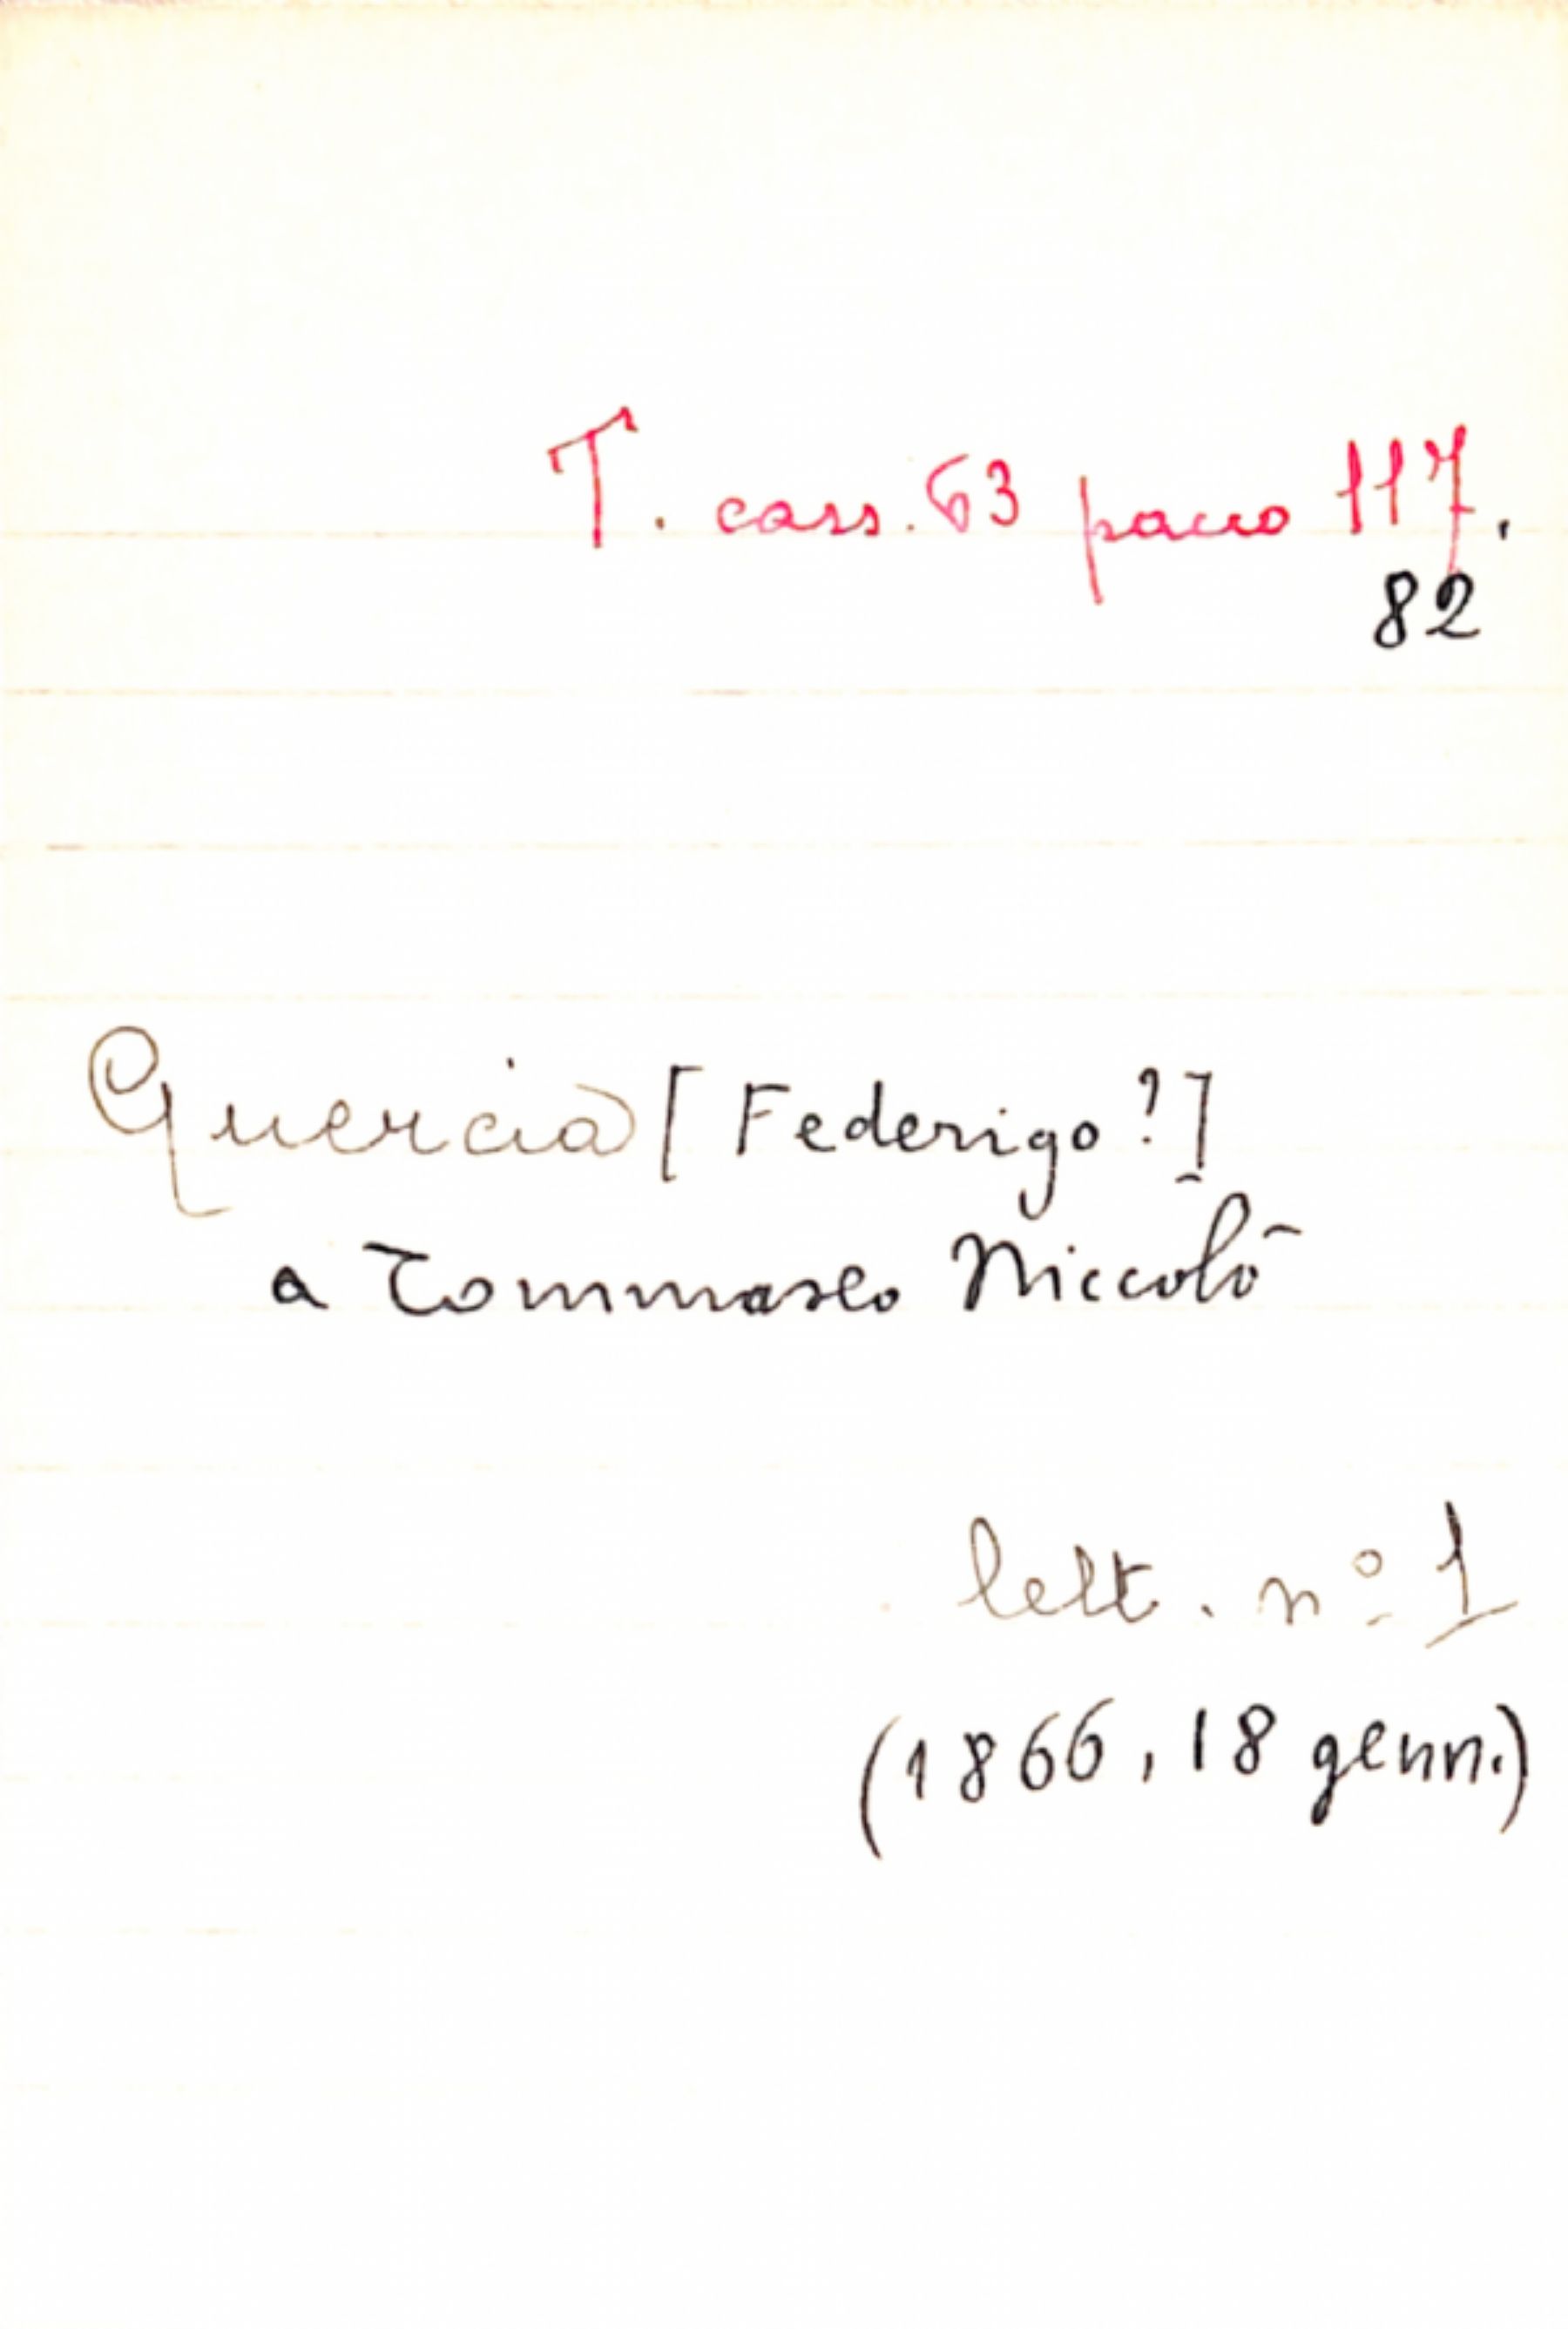 T. cass. 63 pacco 117.
82
Quercia [Federigo?]
a Tommaseo Niccolò
lett. nº 1
(1866, 18 genn.)